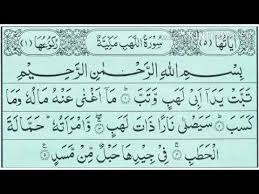 اٰيَاتُهَا (٥) سُوْرَةُ اللَّهَبِ مَكِّيَّةٌ رُكُوْعُهَا (١)
بِسْمِ اللّٰهِ الرَّحْمٰنِ الرَّحِيْمِ
تَبَّتْ يَدَاۤ اَبِيْ لَهَبٍ وَّتَبَّ ۞ مَاۤ اَغْنٰى عَنْهُ مَالُهٗ وَمَا
كَسَبَ ۞ سَيَصْلٰى نَارًا ذَاتَ لَهَبٍ ۞ وَّامْرَاَتُهٗ حَمَّالَةَ
الْحَطَبِ ۞ فِيْ جِيْدِهَا حَبْلٌ مِّنْ مَّسَدٍ ۞